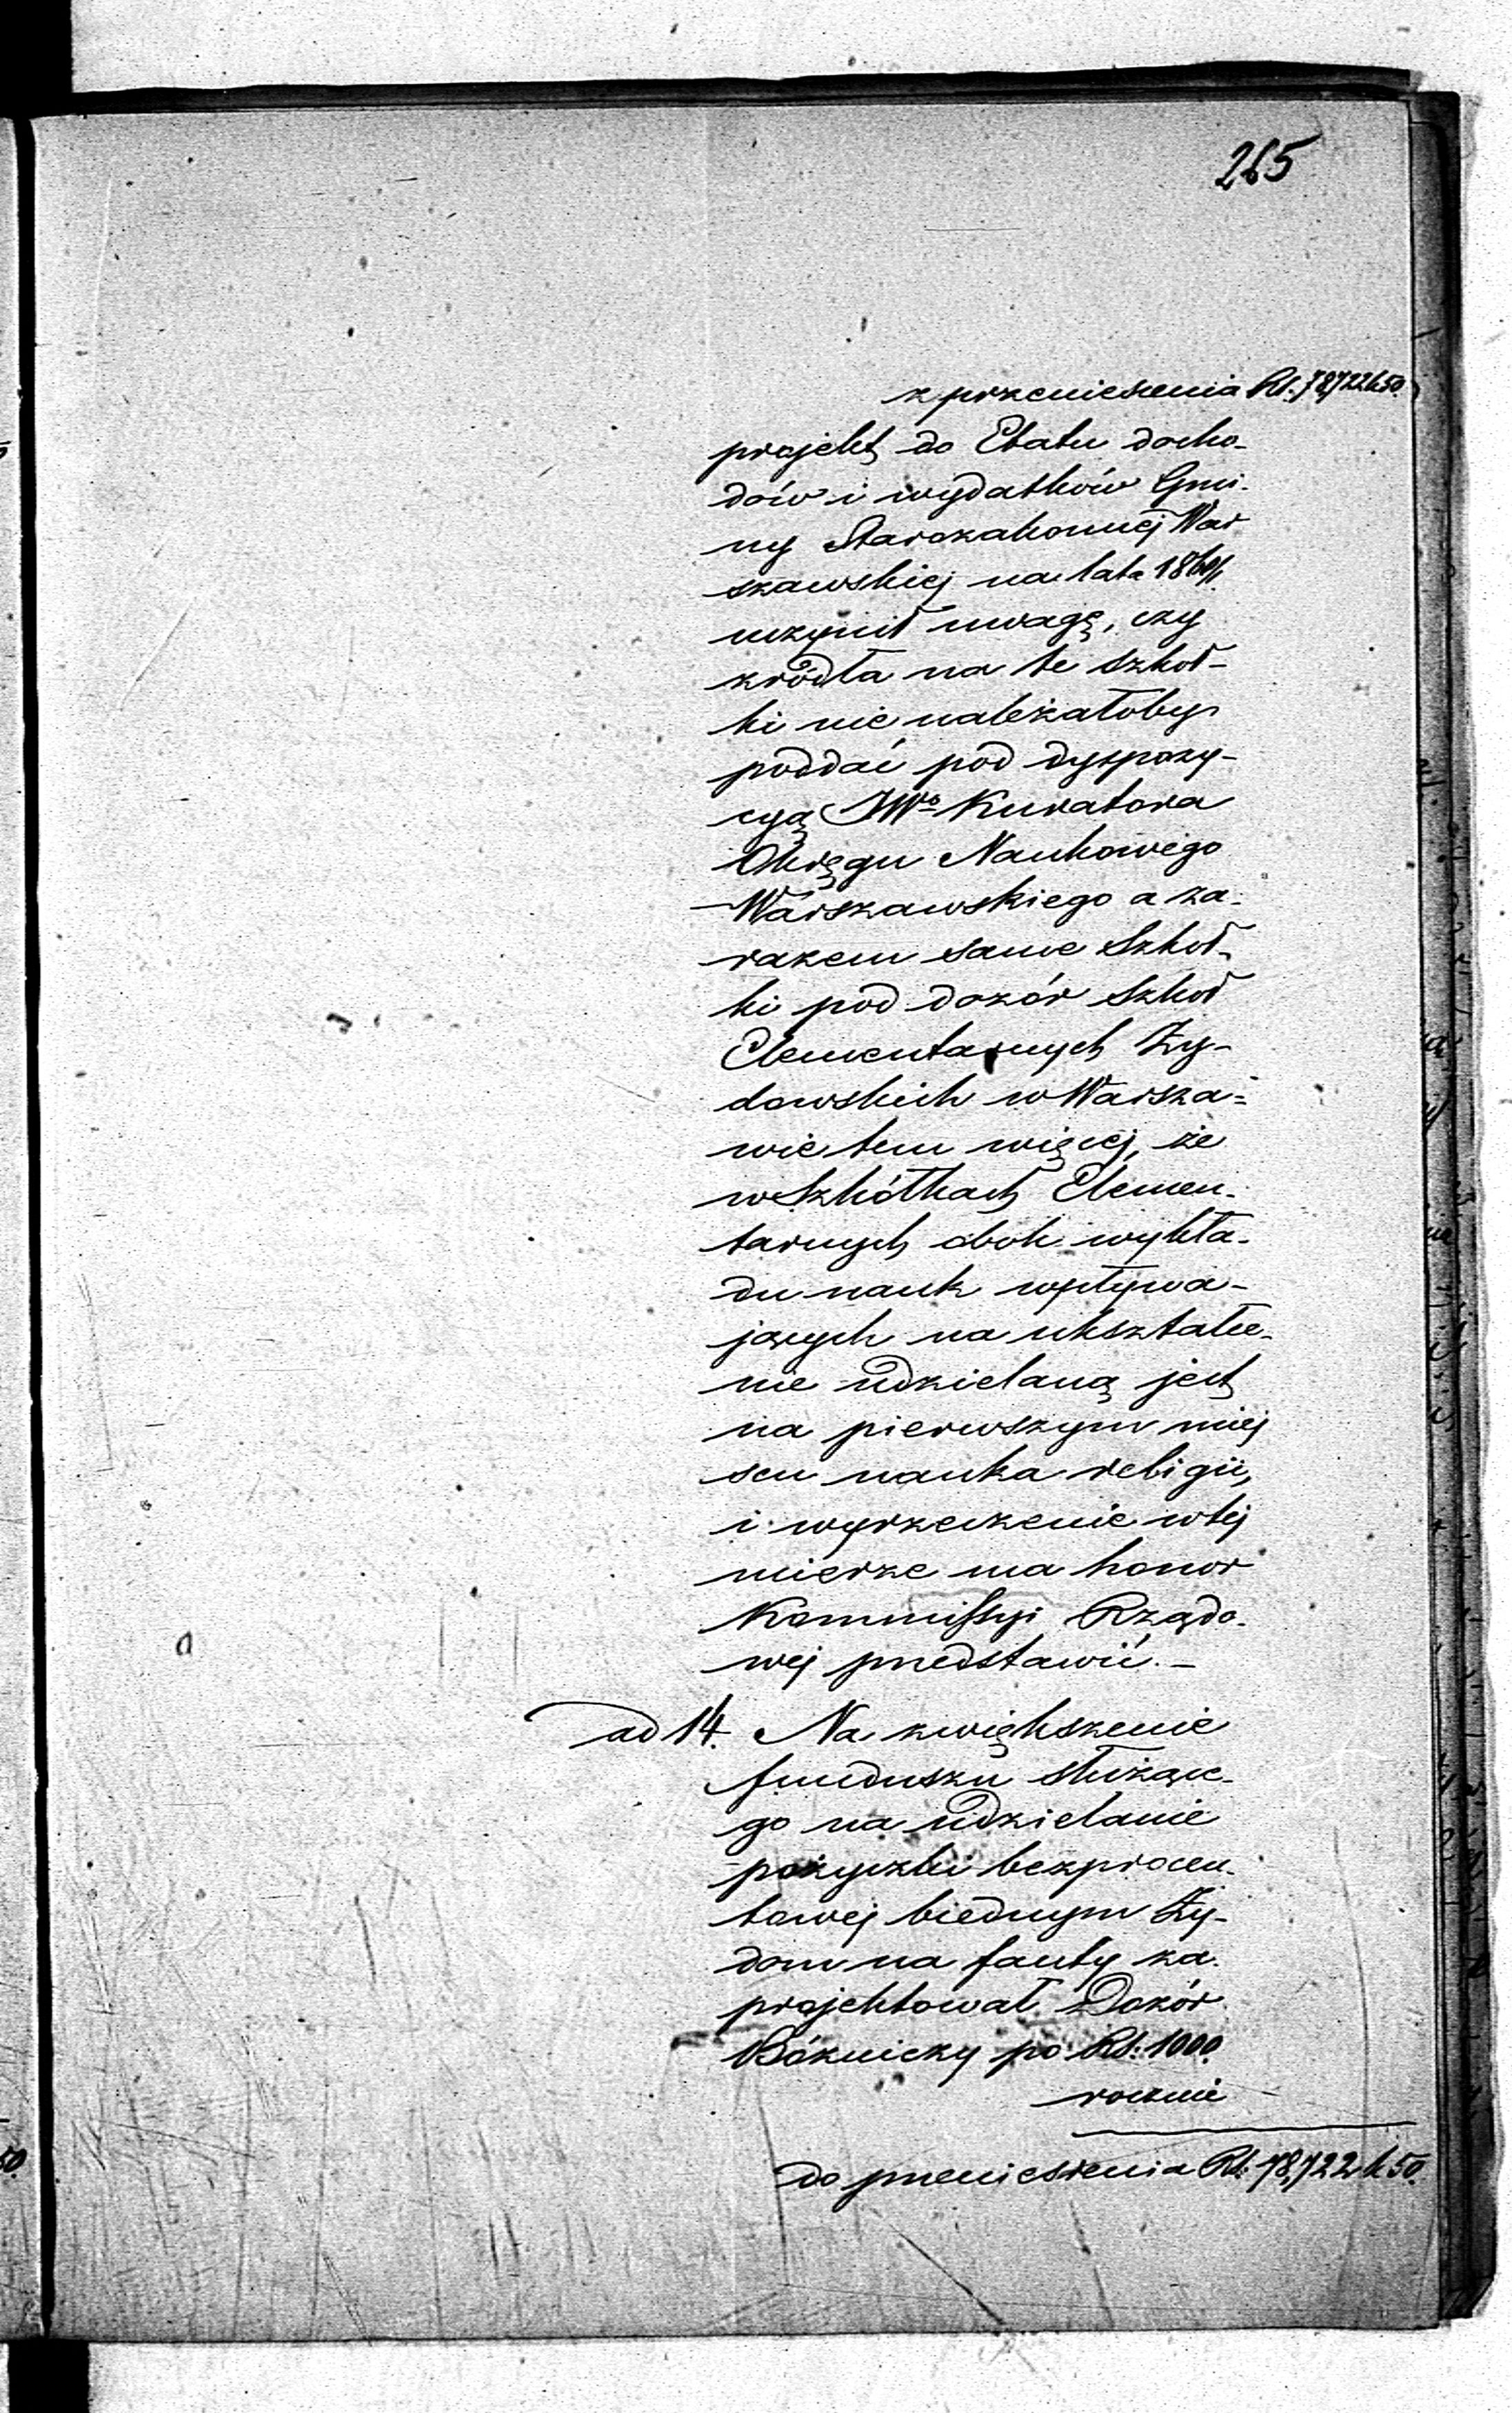 265
z przeniesienia Rs. 78,722 k 50.
projekt do Etatu docho-
dów i wydatków Gmi-
ny Starozakonnej War
szawskiej na lata 1860/1
uczynił uwagę, czy
źródła na te szkoł-
ki nie należałoby
poddać pod dyspozy-
cyą JWo Kuratora
Okręgu Naukowego
Warszawskiego a za-
razem same Szkoł-
ki pod dozór Szkoł
Elementarnych Ży-
dowskich w Warsza=
wie tem więcej, że
w Szkółkach Elemen-
tarnych obok wykła-
du nauk wpływa-
jących na ukształce-
nie udzielaną jest
na pierwszym miej
scu nauka religii,
i wyrzeczenie w tej
mierze ma honor
Kommissyi Rządo-
wej przedstawić. -
ad 14. Na zwiększenie
funduszu służące-
go na udzielanie
pożyczki bezprocen-
towej biednym Ży-
dom na fanty za-
projektował Dozór
Bóżniczy po Rs. 1000.
rocznie
do przeniesienia Rs. 78,722 k 50.